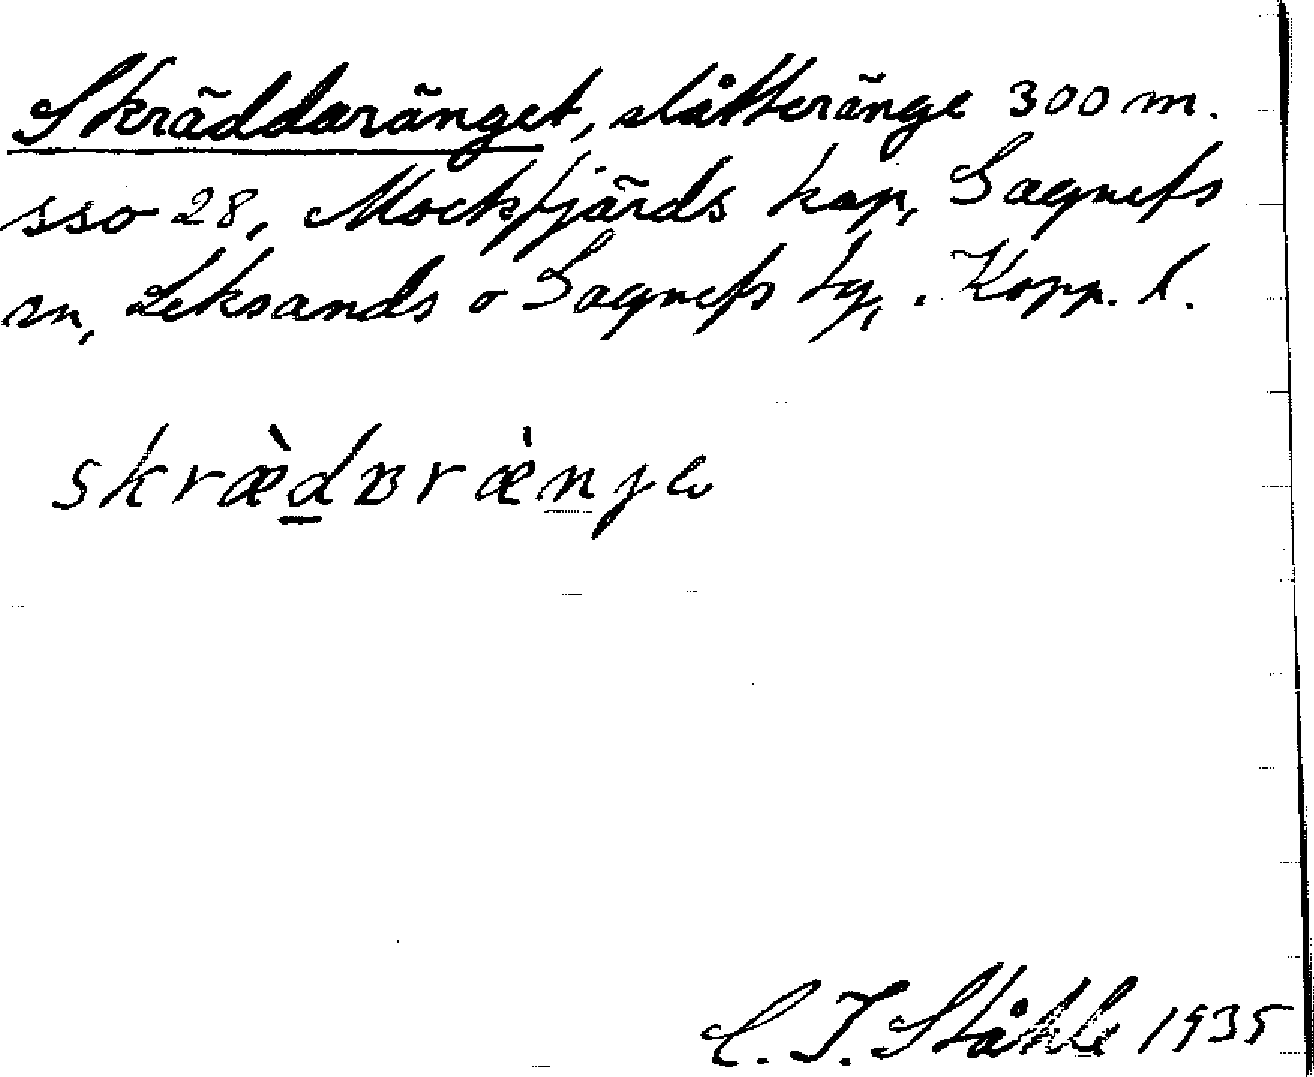 Skräddaränget, slåtteränge 300 m.
sso 28, Mockfjärds kap, Gagnefs
sn, Leksands o Gagnefs tg, . Kopp. l.
skræ̀d̲ɐræ̀nɟe
C. I. Ståhle 1935